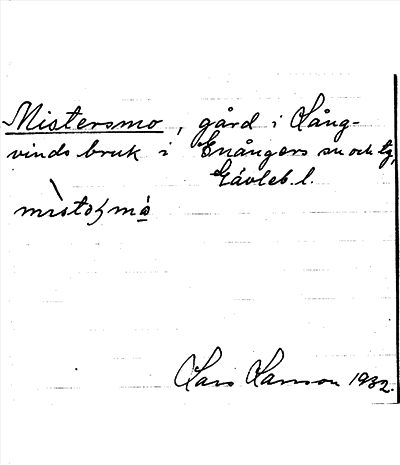 Mistersmo, gård i Lång-
vinds bruk i Enångers sn och tg,
Gävleb. l.
Lars Larsson 1932.